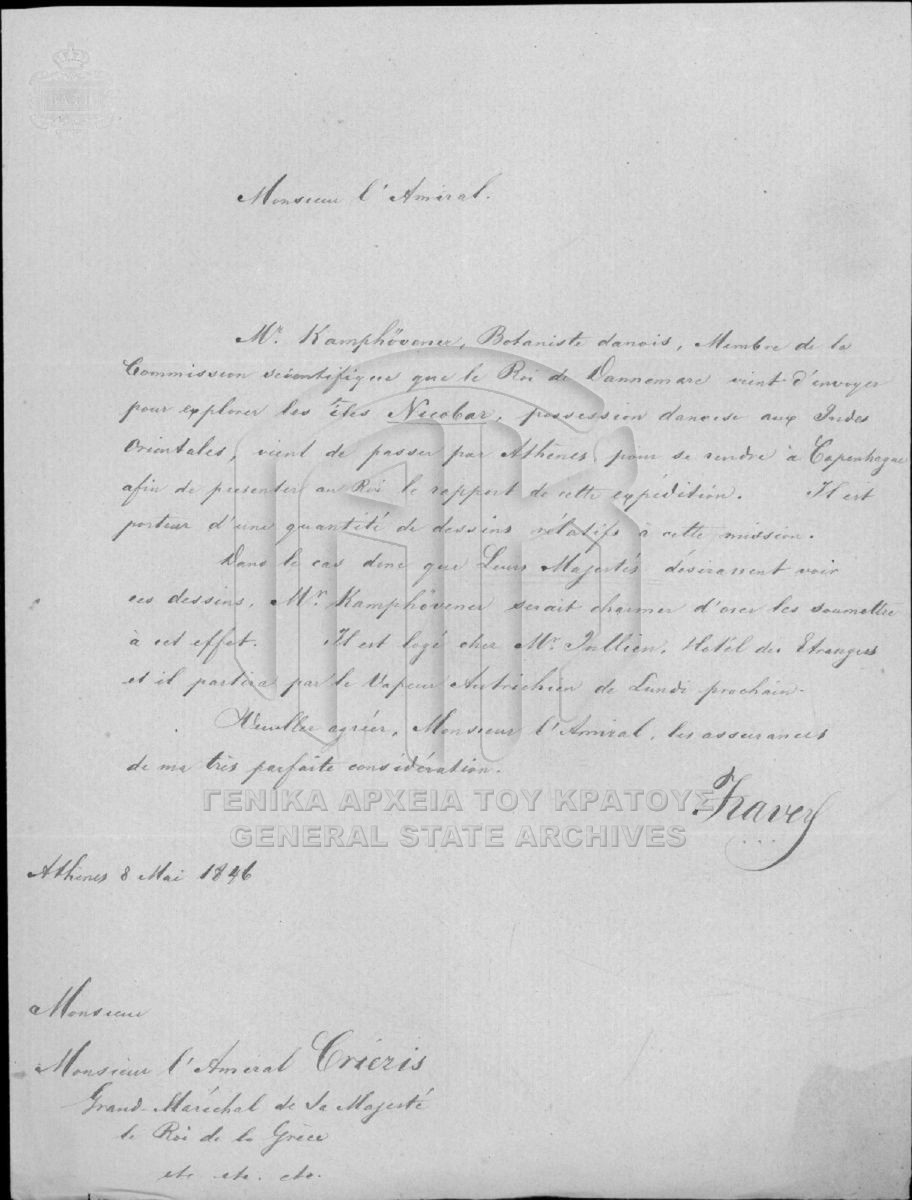 Monsieur l'Amiral.
Mr. Kamphövener, Botaniste danois, Membre de la
Commission scientifique que le Roi de Dannemarc vient d'envoyer
pour explorer les îles Nicobar, possession danoise aux Indes
Orientales, vient de passer par Athènes pour se rendre à Copenhague
afin de présenter au Roi le rapport de cette expédition. Il est
porteur d'une quantité de dessins rélatifs à cette mission.
Dans le cas donc que Leurs Majestés désirassent voir
ces dessins, Mr Kamphövener serait charmer d'oser les soumettre
à cet effet. Il est logé chez Mr. Jullien, Hotel des Etrangers
et il partira par le Vapeur Autrichien de Lundi prochain.
Veuillez agréer, Monsieur l'Amiral, les assurances
de ma très parfaite considération.
ΓΕΝΙΚΑ ΑΡΧΕΙΑ ΤΟΥ ΚΡΑΤΟΥΣ
GENERAL STATE ARCHIVES
Athènes 8 Mai 1846
Monsieur
Monsieur l'Amiral Criézis
Grand-Maréchal de Sa Majesté
le Roi de la Grèce
etc. etc. etc.